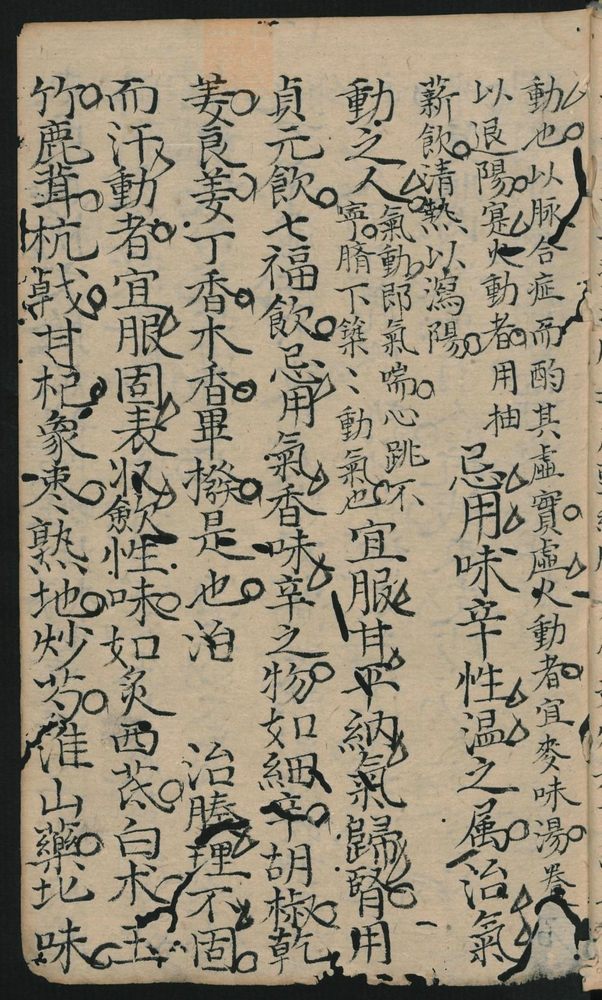 動也以脉合症而酌其虛實虛火動者宜麥味湯
以退陽寔火動者用抽
薪飲清熱以瀉陽
忌用味辛性温之属治氣
動之人
氣動即氣喘心跳不
寧臍下築〻動氣也
宜服甘平納氣歸腎用
貞元飲七福飲忌用氣香味辛之物如細辛胡椒乾
姜良姜丁香木香畢撥是也治
治腠理不固
而汗動者宜服固表收斂性味如炙西茋白术玉
竹鹿茸杭戟甘杞象棗熟地炒芍淮山藥北味